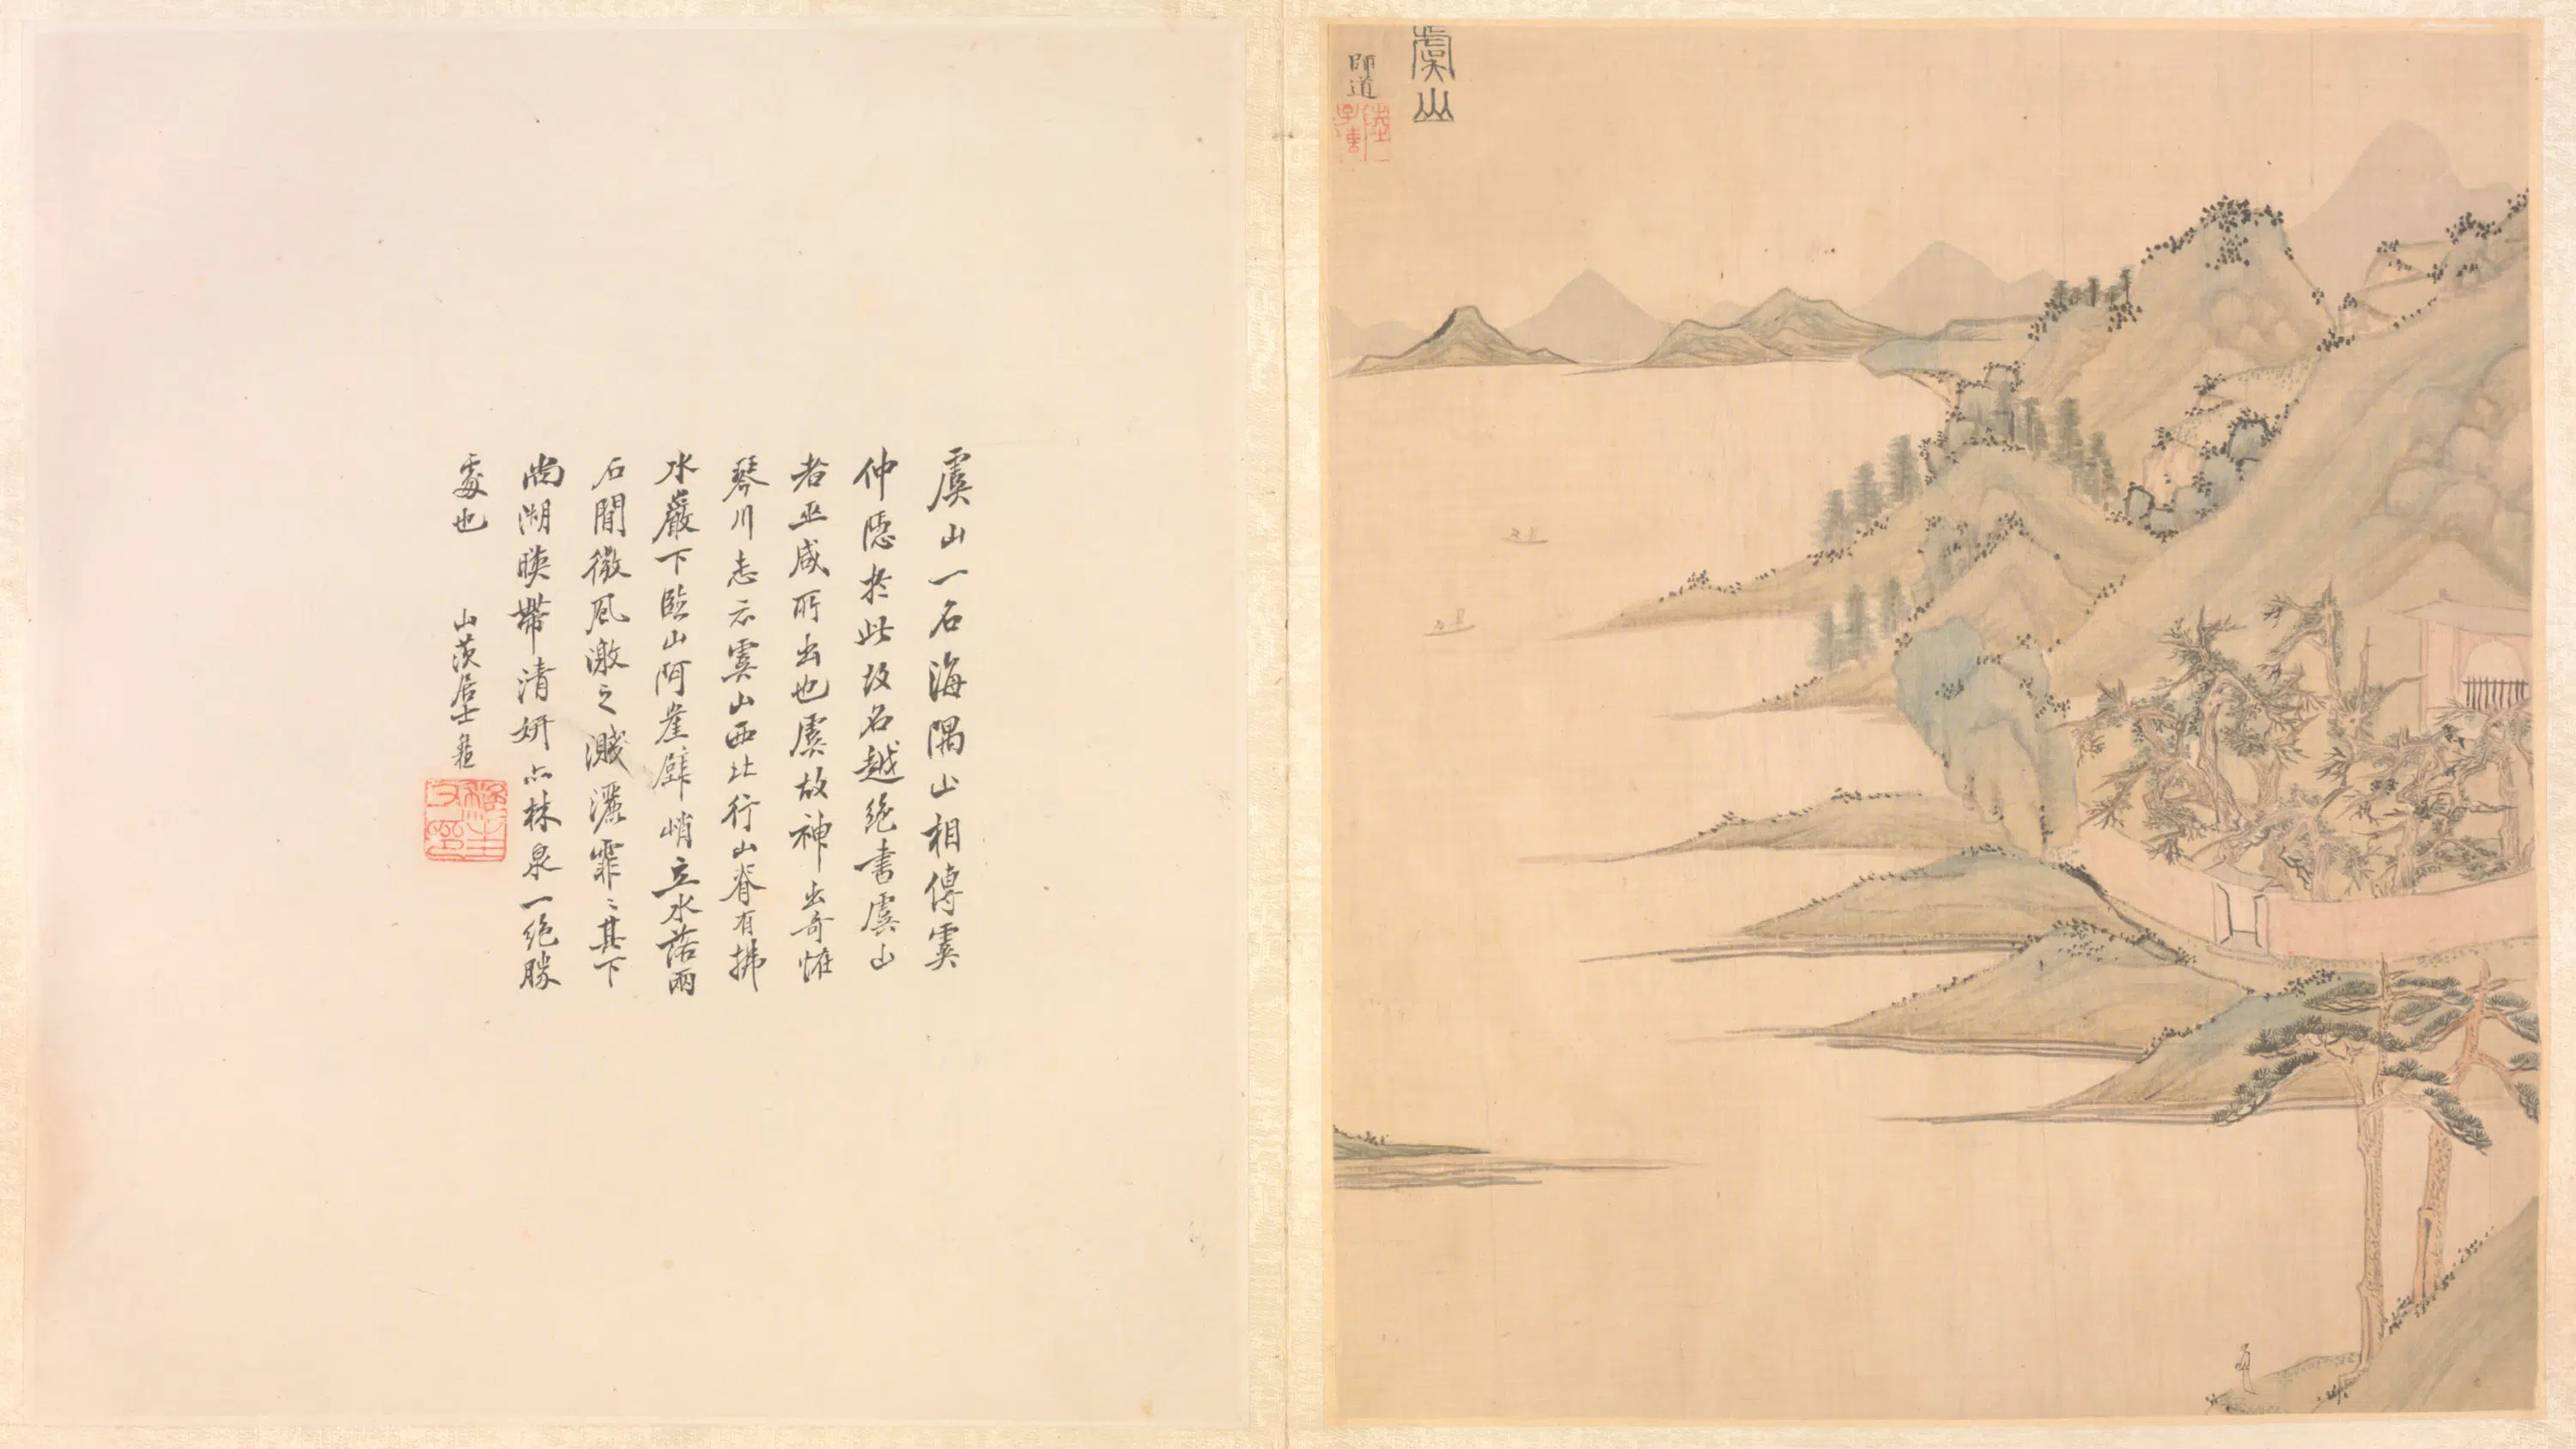 虞山
師道
虞山一名海隅山相傳虞
仲隱於此故名越絕書虞山
者巫咸所出也虞故神出奇怪
琴川志云虞山西北行山脊有拂
水巖下臨山阿崖壁峭立水落兩
石間微風激之濺灑霏〻其下
尚湖暎帶清妍亦林泉一絕勝
處也
山茨居士